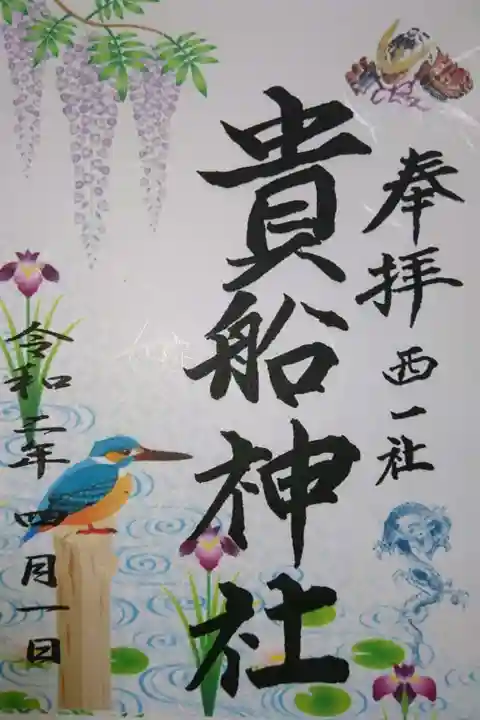 奉拝
西一社
貴船神社
令和二年四月一日